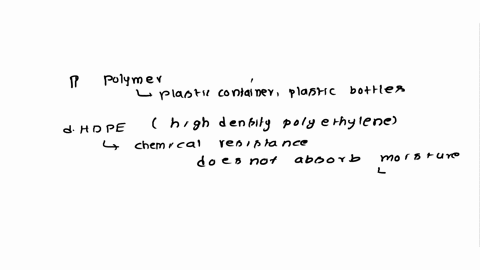 polymer
↳ plastic container, plastic bottles
d. HDPE (high density polyethylene)
↳ chemical resistance
does not absorb moisture